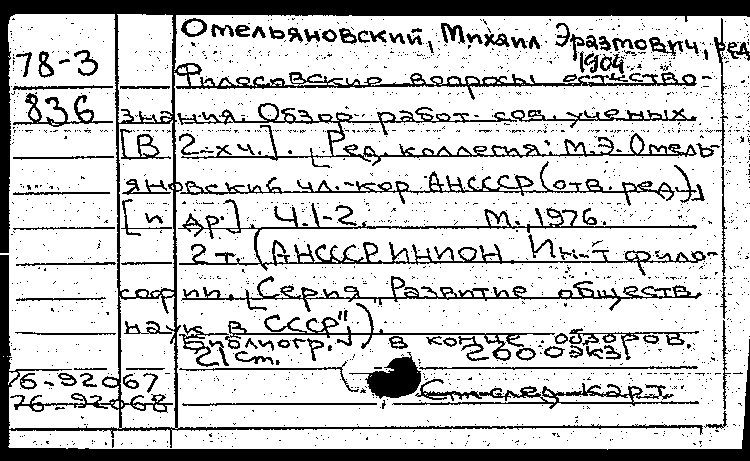 Омельяновский, Михаил Эразмович, ред
1904
78-3 Филосовские вопросы естество-
836 знания. Обзор работ сов. ученых.
[В 2-х ч.]. [Ред. коллегия: М.Э. Омель-
яновский чл.-кор АНСССР (отв. ред.)]
[и др.]. Ч.1-2. М., 1976.
2 т. (АНСССР ИНИОН. Ин-т фило-
софии. [Серия "Развитие обществ.
наук в СССР"]).
Библиогр. в конце обзоров.
21 см. 2000экз
76-92067
См след карт
76-92068